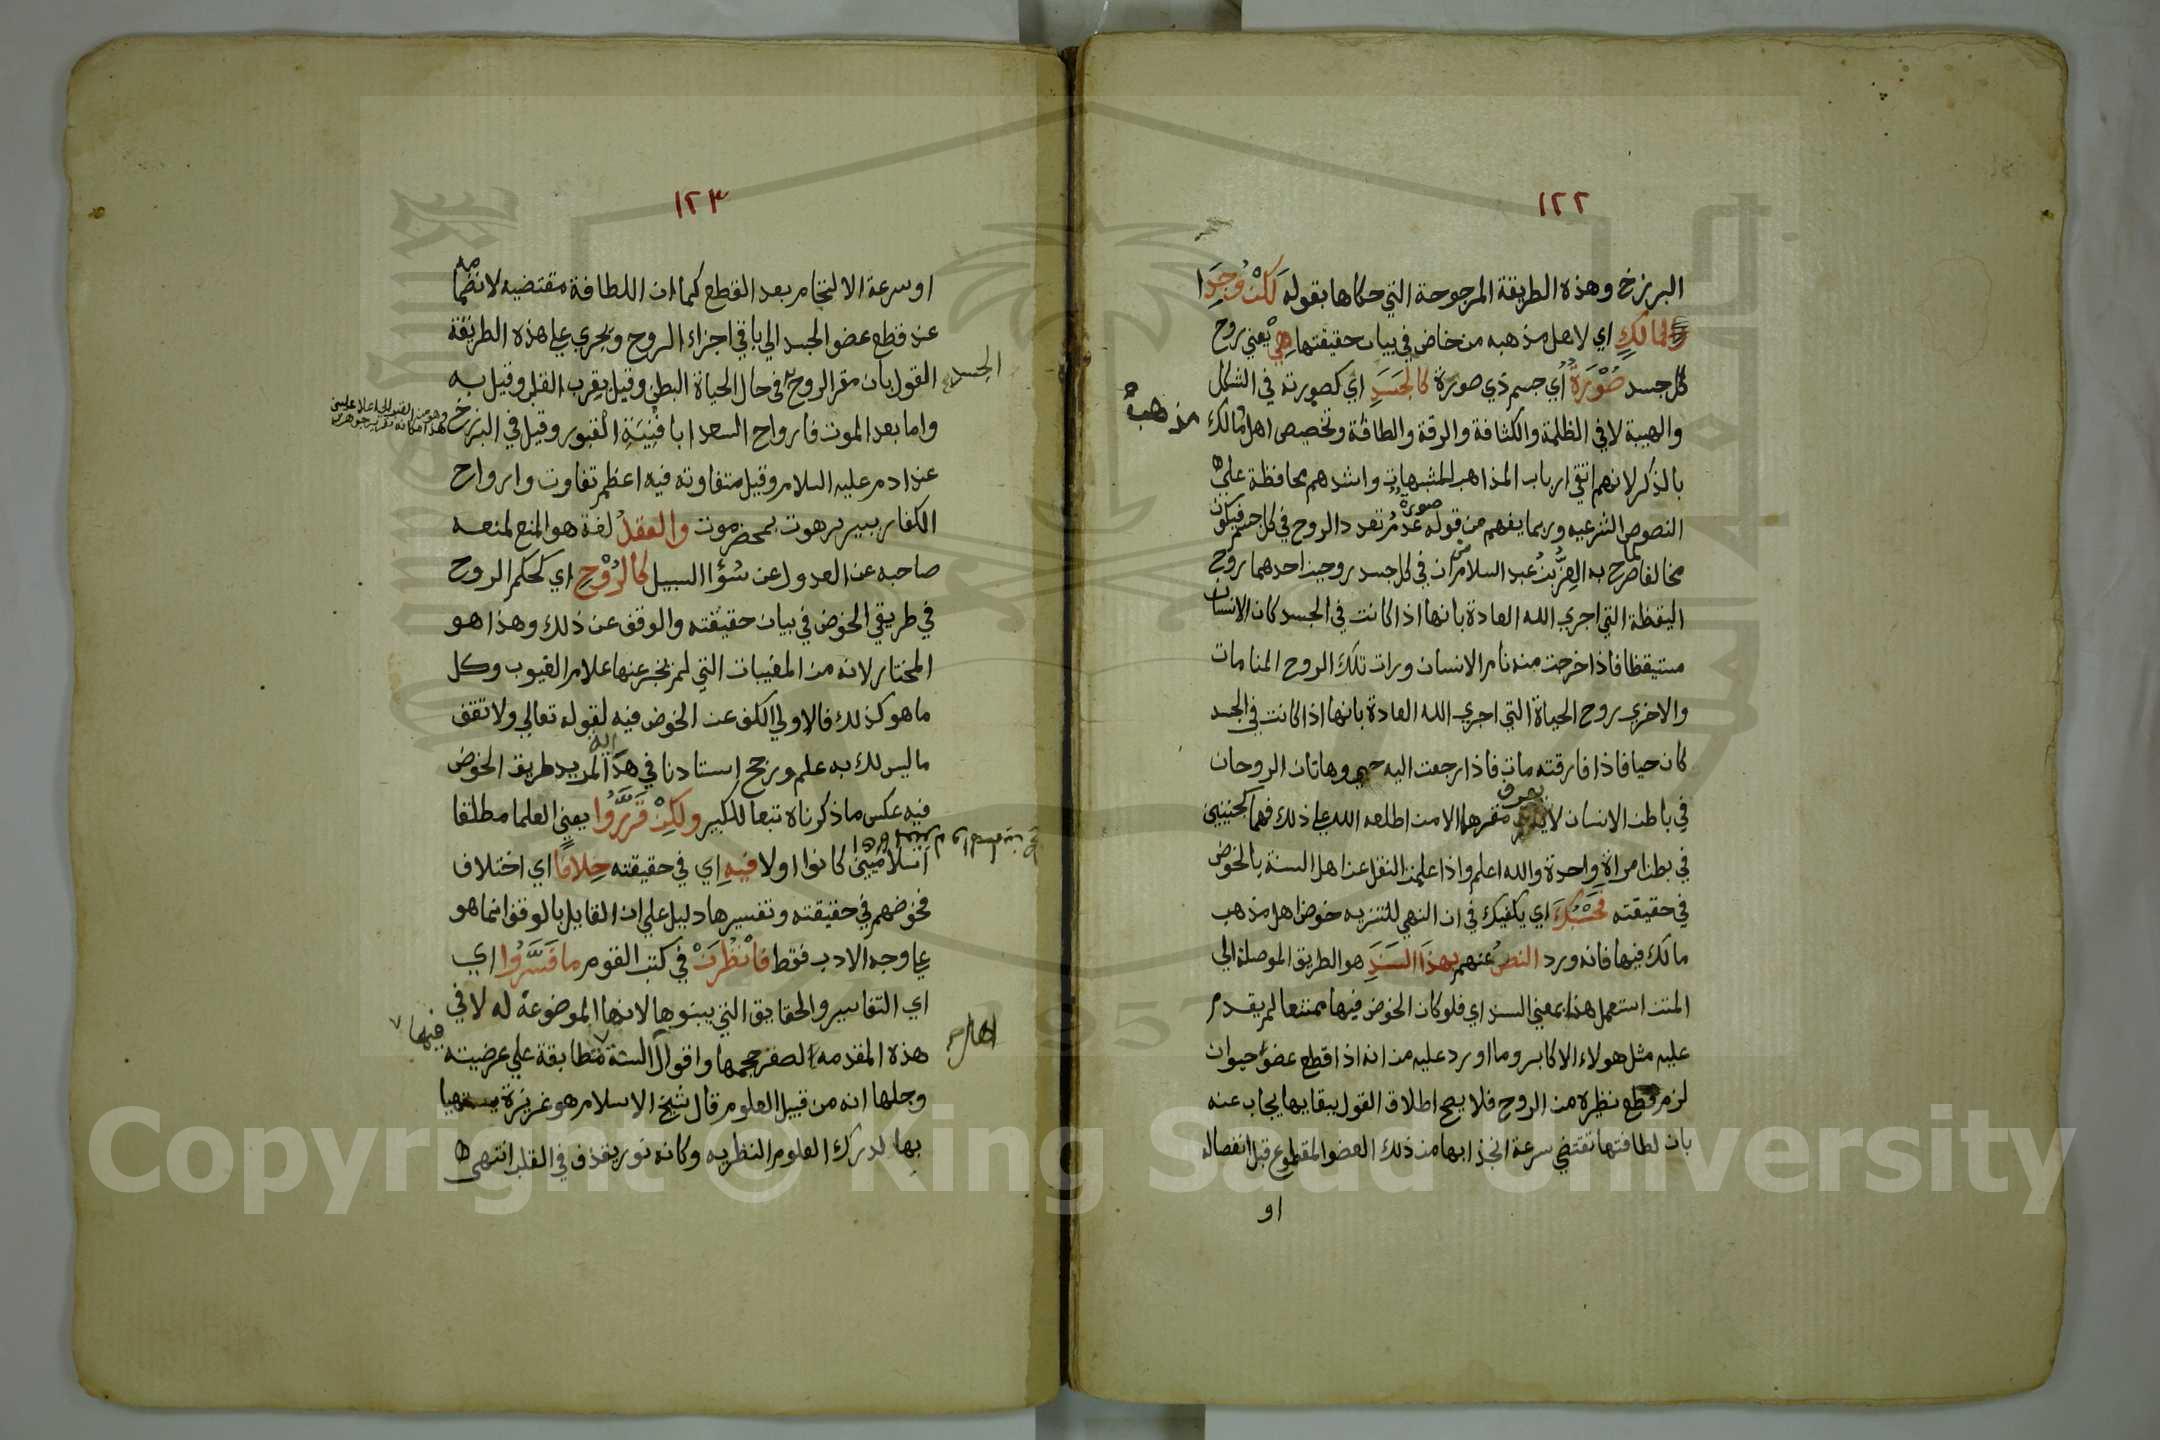 ١٢٢
البرزخ وهذه الطريقة المرجوحة التي حكاها بقوله لكن وجدا
لمالك اي لاهل مذهبه من خاض في بيان حقيقتها هي يعني روح
كل جسد صورة اي جسم ذي صورة كالجسد اي كصورته في الشكل
والهيبة لا في الظلمة والكثافة والرقة والطافة وتخصيص اهل مالك
مذهب
بالذكر لانهم اتقى ارباب المذاهب للشبهات واشدهم محافظة على
النصوص الشرعيه وربما يفهم من قوله صورة عدم تعدد الروح في كل جسم فيكون
مخالفا لما صرح به العز بن عبد السلام من ان في كل جسد روحين احدهما روح
اليقظة التي اجري الله العادة بانها اذا كانت في الجسد كان الانسان
مستيقظا فاذا خرجت منه نام الانسان ورات تلك الروح المنامات
والاخري روح الحياة التي اجري الله العادة بانها اذا كانت في الجسد
كان حيا فاذا فارقته مات فاذا رجعت اليه حيي وهاتان الروحان
في باطن الانسان لا يعرف مقرها الا من اطلعه الله علي ذلك فهما كجنينين
في بطن امراة واحدة والله اعلم واذا علمت النقل عن اهل السنة بالخوض
في حقيقته فحسبك اي يكفيك في ان النهي للتنزيه خوض اهل مذهب
مالك فيها فانه ورد النص عنهم بهذا السند هو الطريق الموصلة الي
المتن استعمل هنا بمعني السند اي فلو كان الخوض فيها ممتنعا لم يقدم
عليه مثل هولاء الاكابر وما اورد عليه من انه اذا قطع عضو حيوان
لزم قطع نظيره من الروح فلا يصح اطلاق القول ببقايها يجاب عنه
بان لطافتها تقتضي سرعة انجذابها من ذلك العضو المقطوع قبل انفصاله
او
١٢٣
او سرعة الالتحام بعد القطع كما ان اللطافة مقتضيه لانضمامه
عند قطع عضو الجسد الي باقي اجزاء الروح ويجري علي هذه الطريقة
القول بان مقر الروح في حال الحياة البطن وقيل بقرب القلب وقيل به
الجسد
واما بعد الموت فارواح السعدا بافنية القبور وقيل في البرزخ
عند ادم عليه السلام وقيل متفاوته فيه اعظم تفاوت وارواح
الكفار ببير برهوت بحضرموت والعقل لغة هو المنع لمنعه
صاحبه عن العدول عن سؤا السبيل كالروح اي كحكم الروح
في طريقي الخوض في بيان حقيقته والوقف عن ذلك وهذا هو
المختار لانه من المغيبات التي لم يخبر عنها علام الغيوب وكل
ما هو كذلك فالاولي الكف عن الخوض فيه لقوله تعالي ولا تقف
ما ليس لك به علم ورجح استادنا في هداية المريد طريق الخوض
فيه عكس ما ذكرناه تبعا للكبير ولكن قرروا يعني العلما مطلقا
اسلاميين كانوا اولا فيه اي في حقيقته خلافا اي اختلاف
فخوضهم في حقيقته وتفسيرها دليل علي ان القايل بالوقف انما هو
علي وجه الادب فقط فانظرن في كتب القوم ما فسروا اي
اي التفاسير والحقايق التي بينوها لانها الموضوعة له لا في
هذه المقدمه لصغر حجمها واقوال السنة متطابقة علي عرضيته
اهل
فيها
وجلها انه من قبيل العلوم قال شيخ الاسلام هو غريزة يتهيا
بها لدرك العلوم النظريه وكانه نور يقذف في القلب انتهى
Copyright © King Saud University
1957